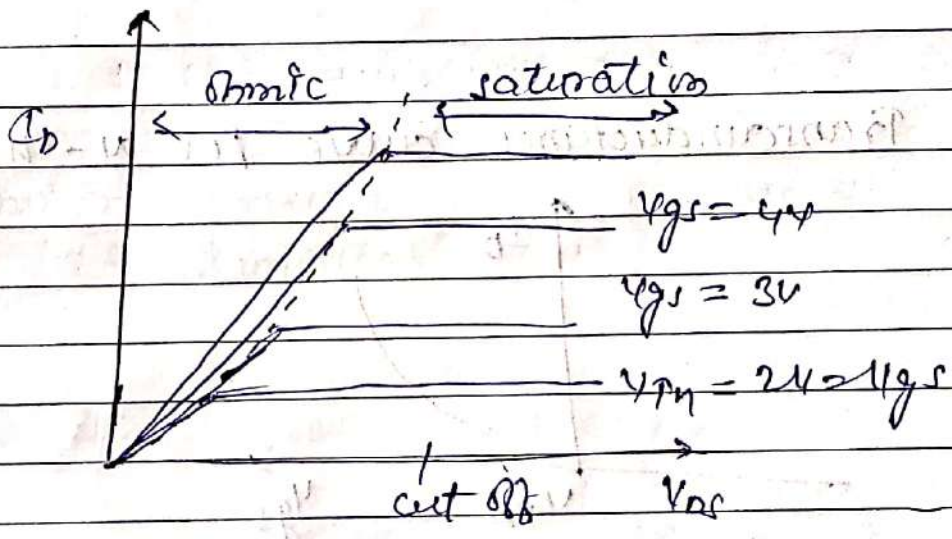 ohmic saturation
I_D
Vgs = 4V
Vgs = 3V
V_Tn = 2V = Vgs
cut off V_DS